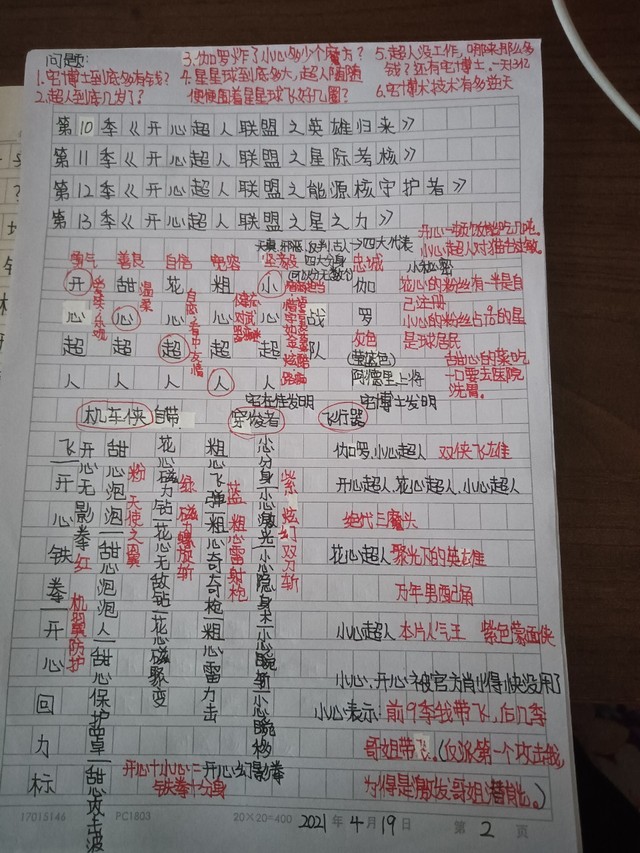 问题:
1.宅博士到底多有钱?
2.超人到底几岁了?
3.伽罗炸了小心多少个魔方?
4.星星球到底多大,超人随随便便围着星星球飞好几圈?
5.超人没工作,哪来那么多钱?还有宅博士,一天3亿
6.宅博士技术有多逆天
第10季《开心超人联盟之英雄归来》
第11季《开心超人联盟之星际考核》
第12季《开心超人联盟之能源核守护者》
第13季《开心超人联盟之星之力》
开心一顿饭能吃几啦
小心超人对猫粒过敏
天真 邪恶
古人→四大代表
勇气 善良 自信 宽容 坚毅 四大分身 忠城
(可以分无数个)
小秘密
开心超人
甜心超人
花心超人
粗心超人
小心超人
战队
伽罗
温柔
灰色
(莹蓝色)
阿德里上将
花心的粉丝有一半是自己注册
小心的粉丝占满的星星球居民
甜甜心的菜吃一口要去医院洗胃.
宅在住发明
宅博士发明
机车侠 自带 穿梭者 飞行器
飞/开心铁拳/开心回力标
开心无影拳 红
机翼防护
甜心泡泡/甜心泡泡人/甜心保护罩/甜心攻击波
粉 天使之翼
花心磁力钻/花心无敌钻/花心磁聚变
绿 磁力螺旋斩
粗心飞弹/粗心奇奇枪/粗心雷力击
蓝 粗心雷射枪
小心分身/小心激光/小心隐身术/小心瞬斩/小心瞬移
紫 炫幻双刀斩
伽罗.小心超人 双侠飞雄
开心超人.花心超人.小心超人
绝代三魔头
花心超人 聚光下的英雄
万年男配角
小心超人 本片人气王 紫色蒙面侠
小心、开心被官方削得快没用了
小心表示:前9季我带飞,后几季
哥姐带飞.(反派第一个攻击我,
为得是激发哥姐潜能。)
开心+小心=开心幻影拳
铁拳+分身
17015146 PC1803 20×20=400 2021年4月19日 第2页